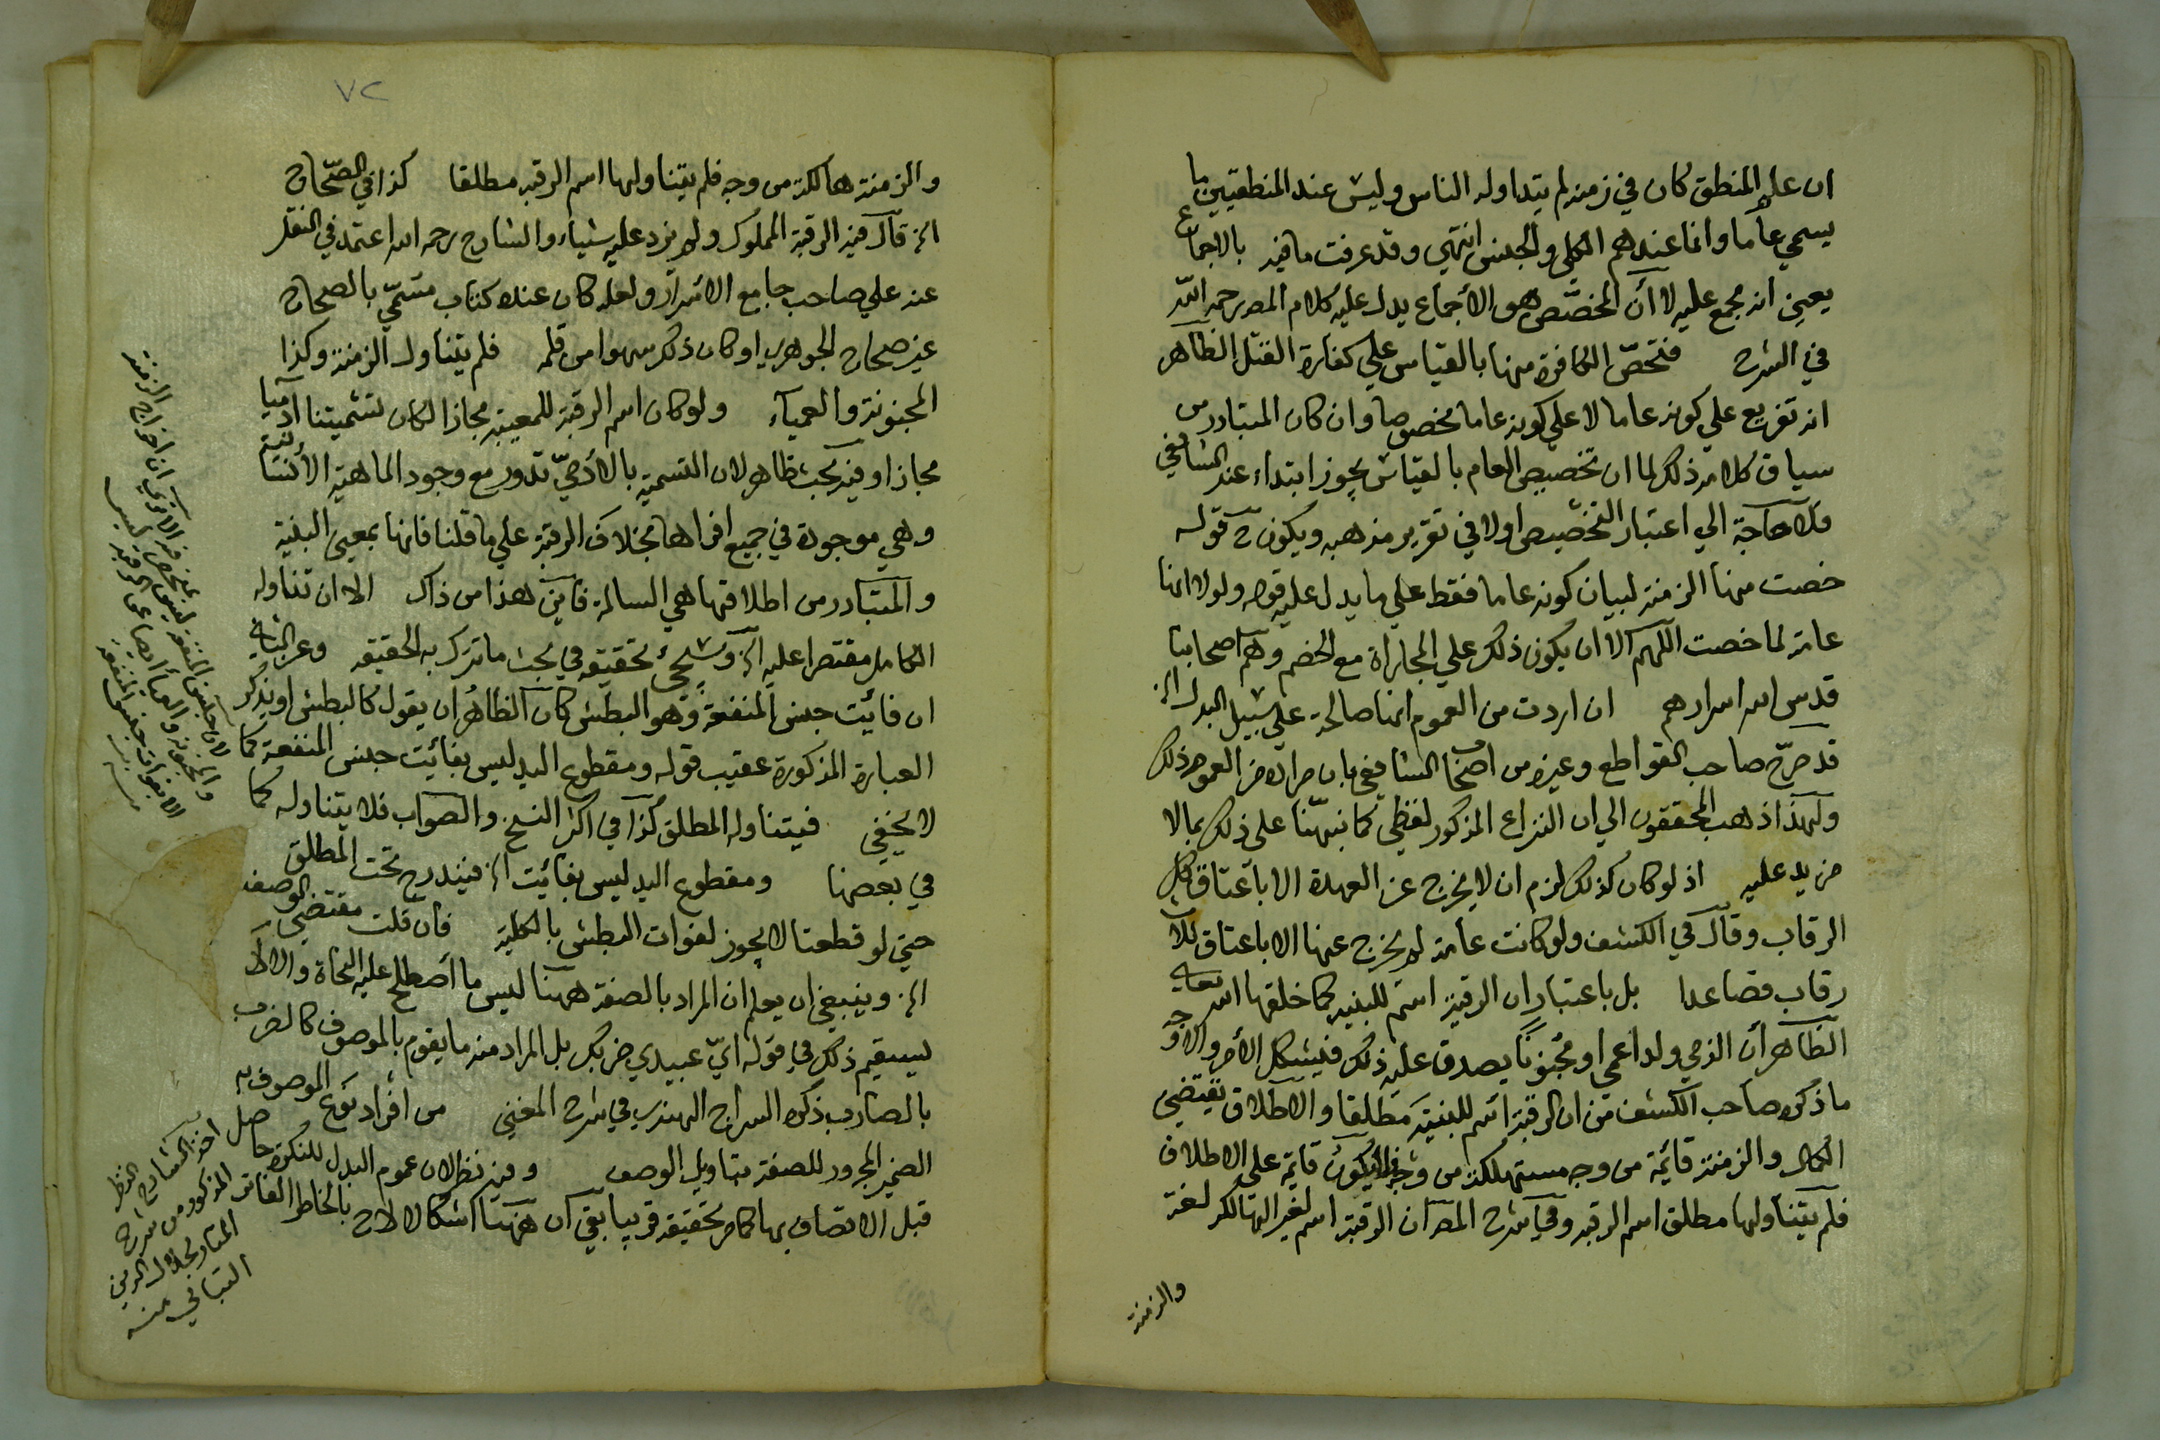 ان علم المنطق كان في زمنه لم يتداوله الناس وليس عند المنطقيين ما
يسمي عاما وانما عندهم الكلي والجنس انتهي وقد عرفت ما فيه بالاجماع
يعني انه مجمع عليه لا أن المخصص هو الاجماع يدل عليه كلام المص رحمه الله
في الشرح فتخص الكافرة منها بالقياس علي كفارة القتل الظاهر
انه تفريع علي كونه عاما لا علي كونه عاما مخصوصا وان كان المتبادر من
سياق كلامه ذلك لما ان تخصيص العام بالقياس يجوز ابتداء عند الشافعي
فلا حاجة الي اعتبار التخصيص اولا في تقرير مذهبه ويكون ح قوله
خصت منها الزمنة لبيان كونه عاما فقط علي ما يدل عليه قوله ولولا انها
عامة لما خصت اللهم الا ان يكون ذلك علي المجاراة مع الخصم وهم اصحابنا
قدس الله اسرارهم ان اردت من العموم انها صالحة علي سبيل البدل الخ
قد صرح صاحب القواطع وغيره من اصحاب الشافعي بان مراده من العموم ذلك
ولهذا ذهب المحققون الي ان النزاع المذكور لفظي كما نبهنا علي ذلك بما لا
مزيد عليه اذ لو كان كذلك لزم ان لا يخرج عن العهدة الا باعتاق كل
الرقاب وقال في الكشف ولو كانت عامة لم يخرج عنها الا باعتاق ثلاث
رقاب فصاعدا بل باعتبار ان الرقبة اسم للبنية كما خلقها الله تعالي
الظاهر أن الذمي ولد اعمي او مجنونا يصدق عليه ذلك فيشكل الأمر والاوجه
ما ذكره صاحب الكشف من ان الرقبة اسم للبنية مطلقا والاطلاق يقتضي
الكمال والزمنة قائمة من وجه مستهلكة من وجه فلا يكون قائمة علي الاطلاق
فلم يتناولها مطلق اسم الرقبه وفي شرح المص ان الرقبة اسم لغير الهالك لغة
والزمنة
٧٢
والزمنة هالكة من وجه فلم يتناولها اسم الرقبه مطلقا كذا في الصحاح
الخ قال فيه الرقبة المملوك ولم يزد عليه شيأ والشارح رحمه الله اعتمد في النقل
عنه علي صاحب جامع الاسرار ولعله كان عنده كتاب مسمي بالصحاح
غير صحاح الجوهري او كان ذكره سهوا من قلمه فلم يتناول الزمنة وكذا
المجنونة والعمياء ولو كان اسم الرقبة للمعيبة مجازا لكان تسميتنا ادميا
مجازا وفيه بحث ظاهر لان التسمية بالادمي تدور مع وجود الماهية الانسانية
وهي موجودة في جميع افرادها بخلاف الرقبة علي ما قلنا فانها بمعني البنية
والمتبادر من اطلاقها هي السالمة فاين هذا من ذاك الا ان تناوله
الكامل مقتصرا عليه الخ وسيجئ تحقيقه في بحث ما تترك به الحقيقه وعن الثانيه
ان فائت جنس المنفعة وهو البطش كان الظاهر ان يقول كالبطش او يذكر
العبارة المذكورة عقيب قوله ومقطوع اليد ليس بفائت جنس المنفعة كما
لا يخفي فيتناوله المطلق كذا في اكثر النسخ والصواب فلا يتناوله كما
في بعضها ومقطوع اليد ليس بفائت الخ فيندرج تحت المطلق
حتي لو قطعتا لا يجوز لفوات البطش بالكلية فان قلت مقتضي الوصف
الخ وينبغي ان يعلم ان المراد بالصفة ههنا ليس ما اصطلح عليه النحاة والا لم
يستقيم ذلك في قوله اي عبيدي ضربك بل المراد منه ما يقوم بالموصوف كالضرب
بالضارب ذكره السراج الهندي في شرح المغني من افراد نوع الموصوف به
الضمير المجرور للصفة بتاويل الوصف وفيه نظر لان عموم البدل للنكرة حاصل
قبل الاتصاف بها كما مر تحقيقه قريبا بقي ان ههنا اشكالا لاح بالخاطر الفاتر
اخذ الشارح هذا النظر
المذكور من شرح
المنار لجلال الدين
التباني منه